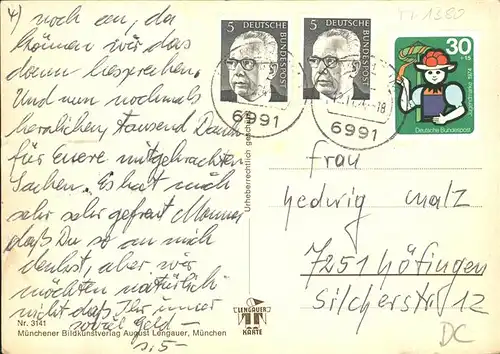 4) noch an, da
können wir das
dann besprechen.
Und nun nochmals
herzlichen, tausend Dank
für Euere mitgebrachten
Sachen. Es hat mich
sehr sehr gefreut
daß Du so an mich
denkst, aber wir
möchten natürlich
nicht daß Ihr immer
soviel Geld -
s. 5 -
Nr. 3141
Münchener Bildkunstverlag August Lengauer, München
Urheberrechtlich geschützt
LENGAUER
KARTE
5
DEUTSCHE BUNDESPOST
5
DEUTSCHE BUNDESPOST
30
+15
Jugendmarke 1974
Deutsche Bundespost
6991
-18
6991
1380
Frau
Hedwig Malz
7251 Höfingen
Silcherstr 12
DC